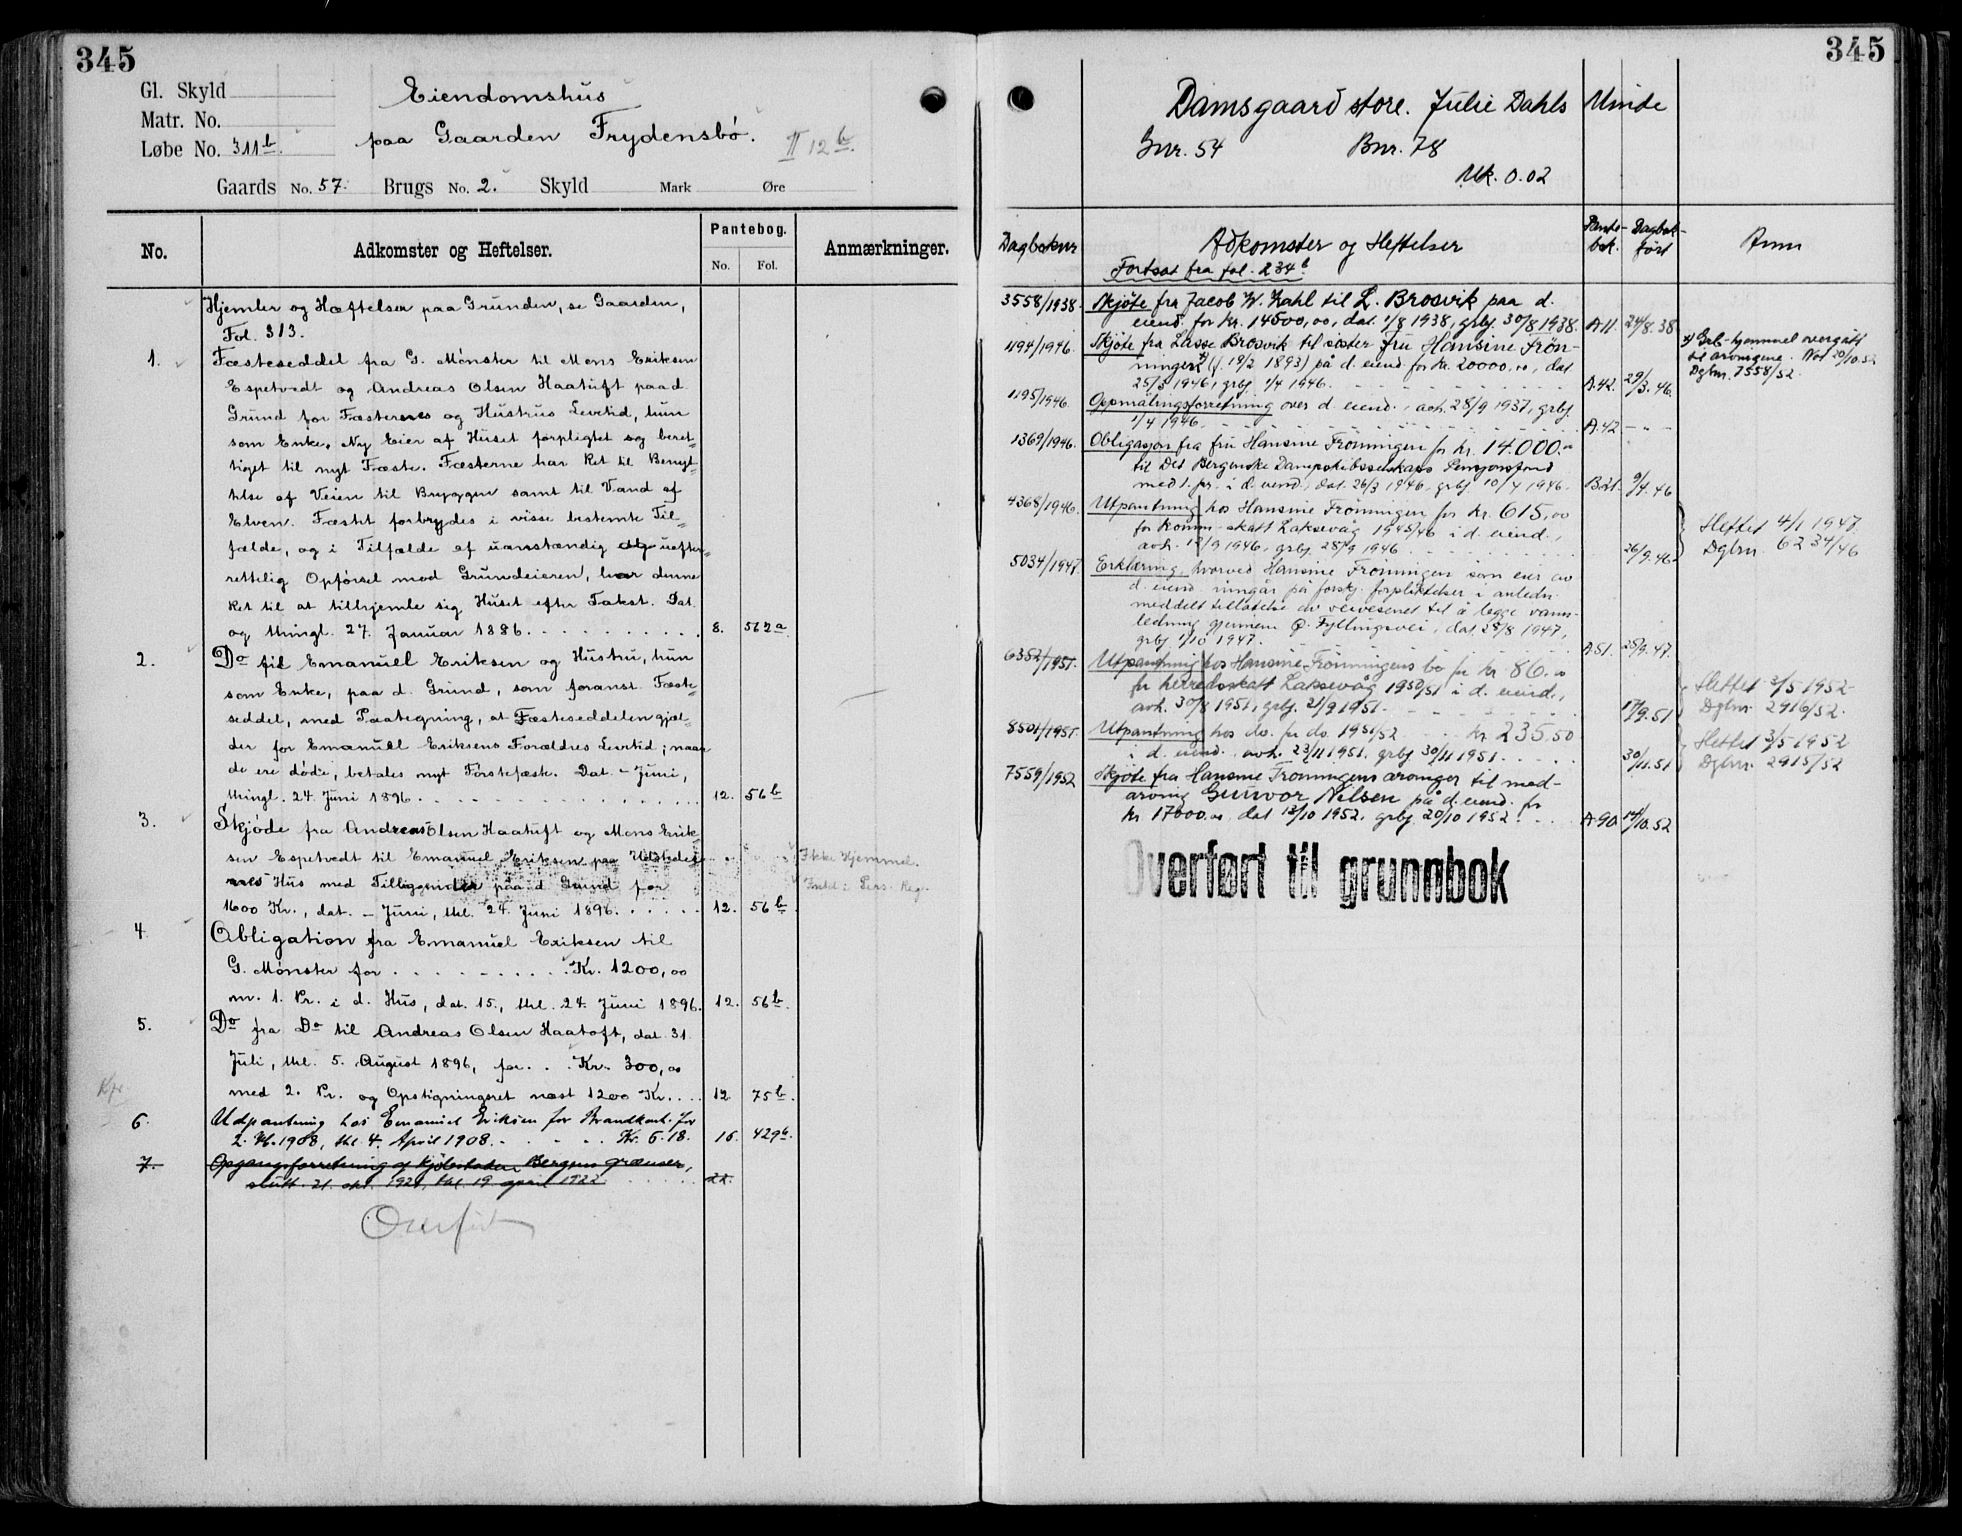 345
Gl. Skyld
Matr. No.
Løbe No. 311b.
Eiendomshus
paa Gaarden Frydensbö.
II 12b.
Gaards No. 57. Brugs No. 2. Skyld Mark Øre
No. Adkomster og Heftelser. Pantebog. No. Fol. Anmærkninger.
Hjemler og Hæftelser paa Grunden, se Gaarden,
Fol. 313.
1. Fæsteseddel fra G. Mønster til Mons Eriksen
Espetvedt og Andreas Olsen Haatuft paa d.
Grund for Fæsternes og Hustrus Levetid, hun
som Enke. Ny Eier af Huset forpligtet og beret-
tiget til nyt Fæste. Fæsterne har Ret til Benyt-
telse af Veien til Bryggen samt til Vand af
Elven. Fæstet forbrydes i visse bestemte Til-
fælde, og i Tilfælde af uanstændig og uefter-
rettelig Opførsel mod Grundeieren, har denne
Ret til at tilhjemle sig Huset efter Takst. Dat.
og thingl. 27. Januar 1886. 8. 562a
2. Do til Emanuel Eriksen og Hustru, hun
som Enke, paa d. Grund, som foranst. Fæste-
seddel, med Paategning, at Fæsteseddelen gjæl-
der for Emanuel Eriksens Forældres Levetid; naar
de ere døde, betales nyt Førstefæste. Dat. – Juni,
thingl. 24. Juni 1896. 12. 56b
3. Skjøde fra Andreas Olsen Haatuft og Mons Erik-
sen Espetvedt til Emanuel Eriksen paa Udsteder-
nes Hus med Tilliggender paa d. Grund for
1600 Kr., dat. – Juni, thl. 24. Juni 1896. 12. 56b
Ikke Hjemmel.
Indf. i Pers. Reg.
4. Obligation fra Emanuel Eriksen til
G. Mønster for Kr. 1200,00
m. 1. Pr. i d. Hus, dat. 15., thl. 24. Juni 1896. 12. 56b.
5. Do fra Do til Andreas Olsen Haatoft, dat. 31.
Juli, thl. 5. August 1896, for Kr. 300,00
med 2. Pr. og Opstigningsret næst 1200 Kr. 12. 75b.
6. Udpantning hos Emanuel Eriksen for Brandkont. for
2. H. 1908, thl. 4. April 1908. Kr. 6.18. 16. 429b.
7. Opgangsforretning af Kjøbstaden Bergens grænser,
slutt. 21. okt. 1921, thl. 19. april 1922
Overført
345
Damsgaard store. Julie Dahls Minde
Gnr. 54 Bnr. 78
Mk. 0.02
Dagboknr Adkomster og Heftelser Pante-bok. Dagbok-ført Anm
Fortsat fra fol. 234b
3558/1938. Skjöte fra Jacob W. Dahl til L. Brosvik paa d.
eiend. for kr. 14500,00, dat. 1/8 1938, grbj. 30/8 1938. A 11. 24/8. 38
1194/1946. Skjöte fra Lasse Brosvik til söster fru Hansine Frön-
ningen x) (f. 19/2 1893) på d. eiend. for kr. 20000,00, dat.
25/3 1946, grbj. 1/4 1946. A.42. 29/3. 46.
x) Grb-hjemmel overgått
til arvingene. Not 20/10.52
Dgbnr. 7558/52.
1195/1946. Oppmålingsforretning over d. eiend., avh. 28/9 1937, grbj.
1/4 1946. A.42 – „ –
1369/1946. Obligasjon fra fru Hansine Frönningen for kr. 14.000.00
til Det Bergenske Dampskibsselskaps Pensjonsfond
med 1. pr. i d. eiend., dat. 26/3 1946, grbj. 10/4 1946. B.21. 9/4. 46
4368/1946. Utpantning hos Hansine Frönningen for kr. 615,00
for komm.-skatt Laksevåg 1945/46 i d. eiend.,
avh. 12/9 1946, grbj. 28/9 1946. 26/9.46.
Slettet 4/1 1947.
Dgbnr. 6234/46
5034/1947. Erklæring hvorved Hansine Frönningen som eier av
d. eiend. inngår på forskj. forpliktelser i anledn.
meddelt tillatelse av veivesenet til å legge vann-
ledning gjennem Ø. Fyllingsvei, dat. 25/8 1947,
grbj. 1/10 1947. A 51. 25/9.47.
6352/1951. Utpantning hos Hansine Frönningens bo for kr. 86.00
for herredsskatt Laksevåg 1950/51 i d. eiend.,
avh. 30/8 1951, grbj. 21/9 1951. 17/9.51
Slettet 3/5 1952
Dgbnr. 2916/52.
8501/1951. Utpantning hos do. for do. 1951/52 kr. 235.50
i d. eiend. avh. 23/11 1951, grbj. 30/11 1951. 30/11.51
Slettet 3/5 1952
Dgbnr. 2915/52
7559/1952 Skjöte fra Hansine Frönningens arvinger til med-
arving Gunvor Nilsen på d. eiend. for
kr. 17000.00 dat 13/10 1952. grbj. 20/10 1952. A 90 14/10.52
Overført til grunnbok